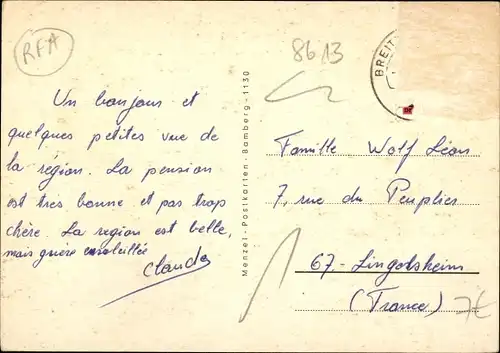 RFA
8613
BREIT
Un bonjour et
quelques petites vue de
la région. La pension
est tres bonne et pas trop
chère. La region est belle,
mais guère ensoleillée
Claude
Menzel-Postkarten-Bamberg-1130
Famille Wolf Léon
7, rue du Peuplier
67.- Lingolsheim
(France)
7€